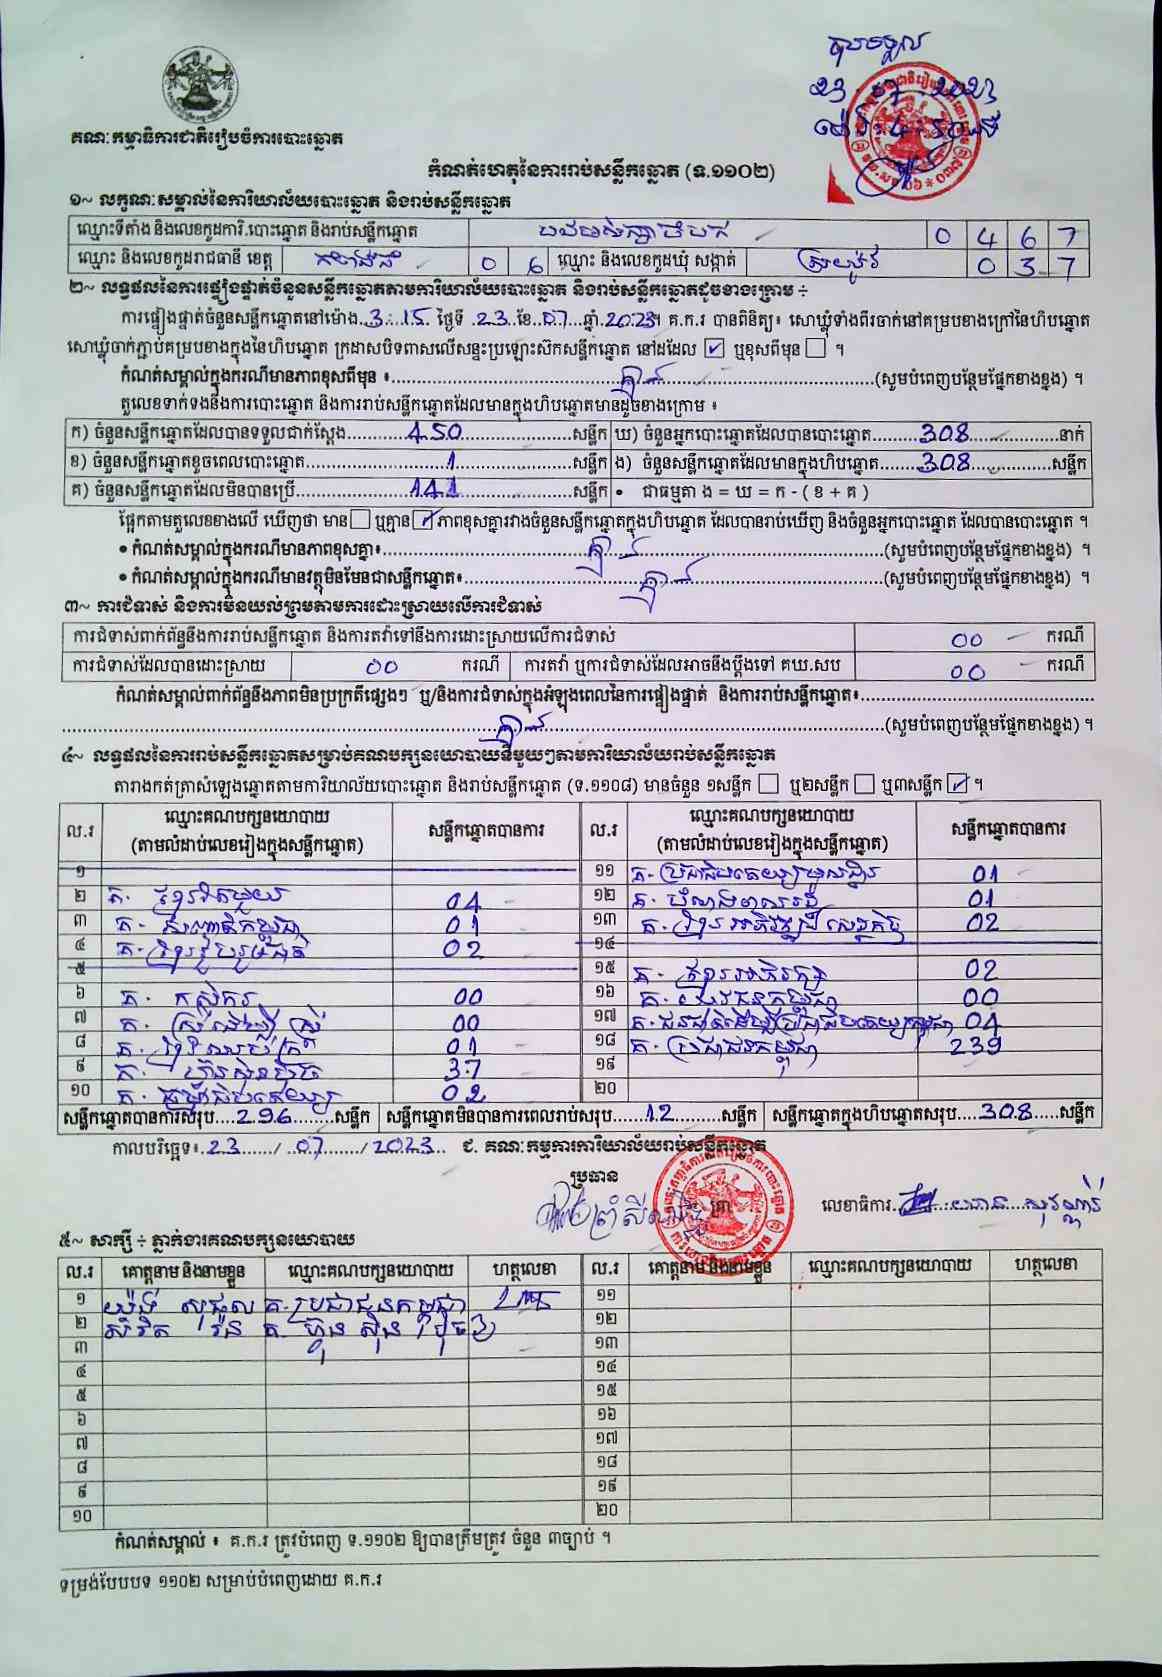 គណៈកម្មាធិការជាតិរៀបចំការបោះឆ្នោត
កំណត់ហេតុនៃការរាប់សន្លឹកឆ្នោត (ទ.១១០២)
១~ លក្ខណៈសម្គាល់នៃការិយាល័យបោះឆ្នោត និងរាប់សន្លឹកឆ្នោត
ឈ្មោះទីតាំង និងលេខកូដការិ.បោះឆ្នោត និងរាប់សន្លឹកឆ្នោត 0 4 6 7
ឈ្មោះ និងលេខកូដរាជធានី ខេត្ត កំពង់ធំ 0 6 ឈ្មោះ និងលេខកូដឃុំ សង្កាត់ ស្រយ៉ូវ 0 3 7
២~ លទ្ធផលនៃការផ្ទៀងផ្ទាត់ចំនួនសន្លឹកឆ្នោតតាមការិយាល័យបោះឆ្នោត និងរាប់សន្លឹកឆ្នោតដូចខាងក្រោម ÷
ការផ្ទៀងផ្ទាត់ចំនួនសន្លឹកឆ្នោតនៅម៉ោង.3:15. ថ្ងៃទី .23..ខែ..07...ឆ្នាំ.2023។ គ.ក.រ បានពិនិត្យ៖ សោឃ្លុំទាំងពីរចាក់នៅគម្របខាងក្រៅនៃហិបឆ្នោត
សោឃ្លុំចាក់ភ្ជាប់គម្របខាងក្នុងនៃហិបឆ្នោត ក្រដាសបិទពាសលើសន្ទះប្រឡោះស៊ិកសន្លឹកឆ្នោត នៅដដែល ☑ ឬខុសពីមុន ☐ ។
កំណត់សម្គាល់ក្នុងករណីមានភាពខុសពីមុន ៖ គ្មាន (សូមបំពេញបន្ថែមផ្នែកខាងខ្នង) ។
តួលេខទាក់ទងនឹងការបោះឆ្នោត និងការរាប់សន្លឹកឆ្នោតដែលមានក្នុងហិបឆ្នោតមានដូចខាងក្រោម ៖
ក) ចំនួនសន្លឹកឆ្នោតដែលបានទទួលជាក់ស្ដែង 450 សន្លឹក ឃ) ចំនួនអ្នកបោះឆ្នោតដែលបានបោះឆ្នោត 308 នាក់
ខ) ចំនួនសន្លឹកឆ្នោតខូចពេលបោះឆ្នោត 1 សន្លឹក ង) ចំនួនសន្លឹកឆ្នោតដែលមានក្នុងហិបឆ្នោត 308 សន្លឹក
គ) ចំនួនសន្លឹកឆ្នោតដែលមិនបានប្រើ 141 សន្លឹក • ជាធម្មតា ង = ឃ = ក - ( ខ + គ )
ផ្អែកតាមតួលេខខាងលើ ឃើញថា មាន ☐ ឬគ្មាន ☑ ភាពខុសគ្នារវាងចំនួនសន្លឹកឆ្នោតក្នុងហិបឆ្នោត ដែលបានរាប់ឃើញ និងចំនួនអ្នកបោះឆ្នោត ដែលបានបោះឆ្នោត ។
• កំណត់សម្គាល់ក្នុងករណីមានភាពខុសគ្នា៖ គ្មាន (សូមបំពេញបន្ថែមផ្នែកខាងខ្នង) ។
• កំណត់សម្គាល់ក្នុងករណីមានវត្ថុមិនមែនជាសន្លឹកឆ្នោត៖ គ្មាន (សូមបំពេញបន្ថែមផ្នែកខាងខ្នង) ។
៣~ ការជំទាស់ និងការមិនយល់ព្រមតាមការដោះស្រាយលើការជំទាស់
ការជំទាស់ពាក់ព័ន្ធនឹងការរាប់សន្លឹកឆ្នោត និងការតវ៉ាទៅនឹងការដោះស្រាយលើការជំទាស់ 00 ករណី
ការជំទាស់ដែលបានដោះស្រាយ 00 ករណី ការតវ៉ា ឬការជំទាស់ដែលអាចនឹងប្ដឹងទៅ គឃ.សប 00 ករណី
កំណត់សម្គាល់ពាក់ព័ន្ធនឹងភាពមិនប្រក្រតីផ្សេងៗ ឬ/និងការជំទាស់ក្នុងអំឡុងពេលនៃការផ្ទៀងផ្ទាត់ និងការរាប់សន្លឹកឆ្នោត៖
គ្មាន (សូមបំពេញបន្ថែមផ្នែកខាងខ្នង) ។
៤~ លទ្ធផលនៃការរាប់សន្លឹកឆ្នោតសម្រាប់គណបក្សនយោបាយនីមួយៗតាមការិយាល័យរាប់សន្លឹកឆ្នោត
តារាងកត់ត្រាសំឡេងឆ្នោតតាមការិយាល័យបោះឆ្នោត និងរាប់សន្លឹកឆ្នោត (ទ.១១០៨) មានចំនួន ១សន្លឹក ☐ ឬ២សន្លឹក ☐ ឬ៣សន្លឹក ☑ ។
ល.រ ឈ្មោះគណបក្សនយោបាយ (តាមលំដាប់លេខរៀងក្នុងសន្លឹកឆ្នោត) សន្លឹកឆ្នោតបានការ ល.រ ឈ្មោះគណបក្សនយោបាយ (តាមលំដាប់លេខរៀងក្នុងសន្លឹកឆ្នោត) សន្លឹកឆ្នោតបានការ
១ ១១ គ. ប្រជាធិបតេយ្យមូលដ្ឋាន 01
២ គ. ខ្មែរតែមួយ 04 ១២ 01
៣ 01 ១៣ គ. ខ្មែរអភិវឌ្ឍន៍សេដ្ឋកិច្ច 02
៤ គ. ខ្មែររួបរួមជាតិ 02 ១៤
៥ ១៥ គ. ខ្មែរអភិរក្ស 02
៦ គ. កសិករ 00 ១៦ គ. យុវជនកម្ពុជា 00
៧ គ. ស្ត្រីដើម្បីស្ត្រី 00 ១៧ 04
៨ 01 ១៨ គ. ប្រជាជនកម្ពុជា 239
៩ គ. ហ៊្វុនស៊ិនប៉ិច 37 ១៩
១០ គ. ធម្មាធិបតេយ្យ 02 ២០
សន្លឹកឆ្នោតបានការសរុប....296........សន្លឹក សន្លឹកឆ្នោតមិនបានការពេលរាប់សរុប......12........សន្លឹក សន្លឹកឆ្នោតក្នុងហិបឆ្នោតសរុប....308.....សន្លឹក
កាលបរិច្ឆេទ៖ 23 / 07 / 2023 ជ. គណៈកម្មការការិយាល័យរាប់សន្លឹកឆ្នោត
ប្រធាន
លេខាធិការ
៥~ សាក្សី ÷ ភ្នាក់ងារគណបក្សនយោបាយ
ល.រ គោត្តនាម និងនាមខ្លួន ឈ្មោះគណបក្សនយោបាយ ហត្ថលេខា ល.រ គោត្តនាម និងនាមខ្លួន ឈ្មោះគណបក្សនយោបាយ ហត្ថលេខា
១ គ. ប្រជាជនកម្ពុជា ១១
២ គ. ហ៊្វុនស៊ិនប៉ិច ១២
៣ ១៣
៤ ១៤
៥ ១៥
៦ ១៦
៧ ១៧
៨ ១៨
៩ ១៩
១០ ២០
កំណត់សម្គាល់ ៖ គ.ក.រ ត្រូវបំពេញ ទ.១១០២ ឱ្យបានត្រឹមត្រូវ ចំនួន ៣ច្បាប់ ។
ទម្រង់បែបបទ ១១០២ សម្រាប់បំពេញដោយ គ.ក.រ